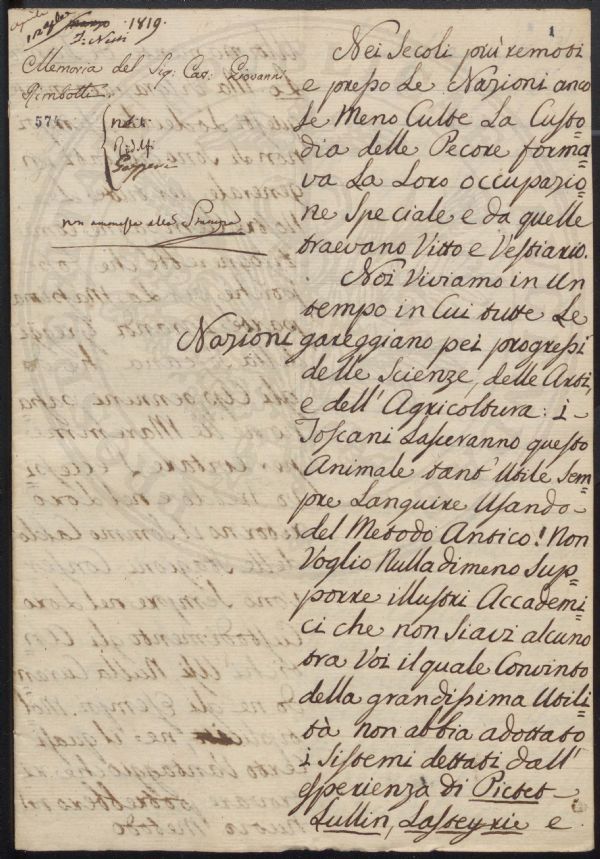 1819.
Memoria del Sig: Cav: Giovanni
Rimbotti
571
Ridolfi
Gazzeri
non ammessa alla Stampa
1
Nei Secoli più remoti
e presso Le Nazioni anco
Le Meno Culte La Custo=
dia delle Pecore forma=
va La Loro occupazio=
ne Speciale e da quelle
traevano Vitto e Vestiario.
Noi Viviamo in Un
tempo in Cui tutte Le
Nazioni gareggiano pei progressi
delle Scienze, delle Arti,
e dell' Agricoltura: i
Toscani Lasceranno questo
Animale tant' Utile Sem=
pre Languire Usando
del Metodo Antico! Non
Voglio Nulladimeno Sup=
porre illustri Accademi=
ci che non Siavi alcuno
tra Voi il quale Convinto
della grandissima Utili=
tà non abbia adottato
i Sistemi dettati dall'
esperienza di Pictet
Lullin, Lasteyrie e